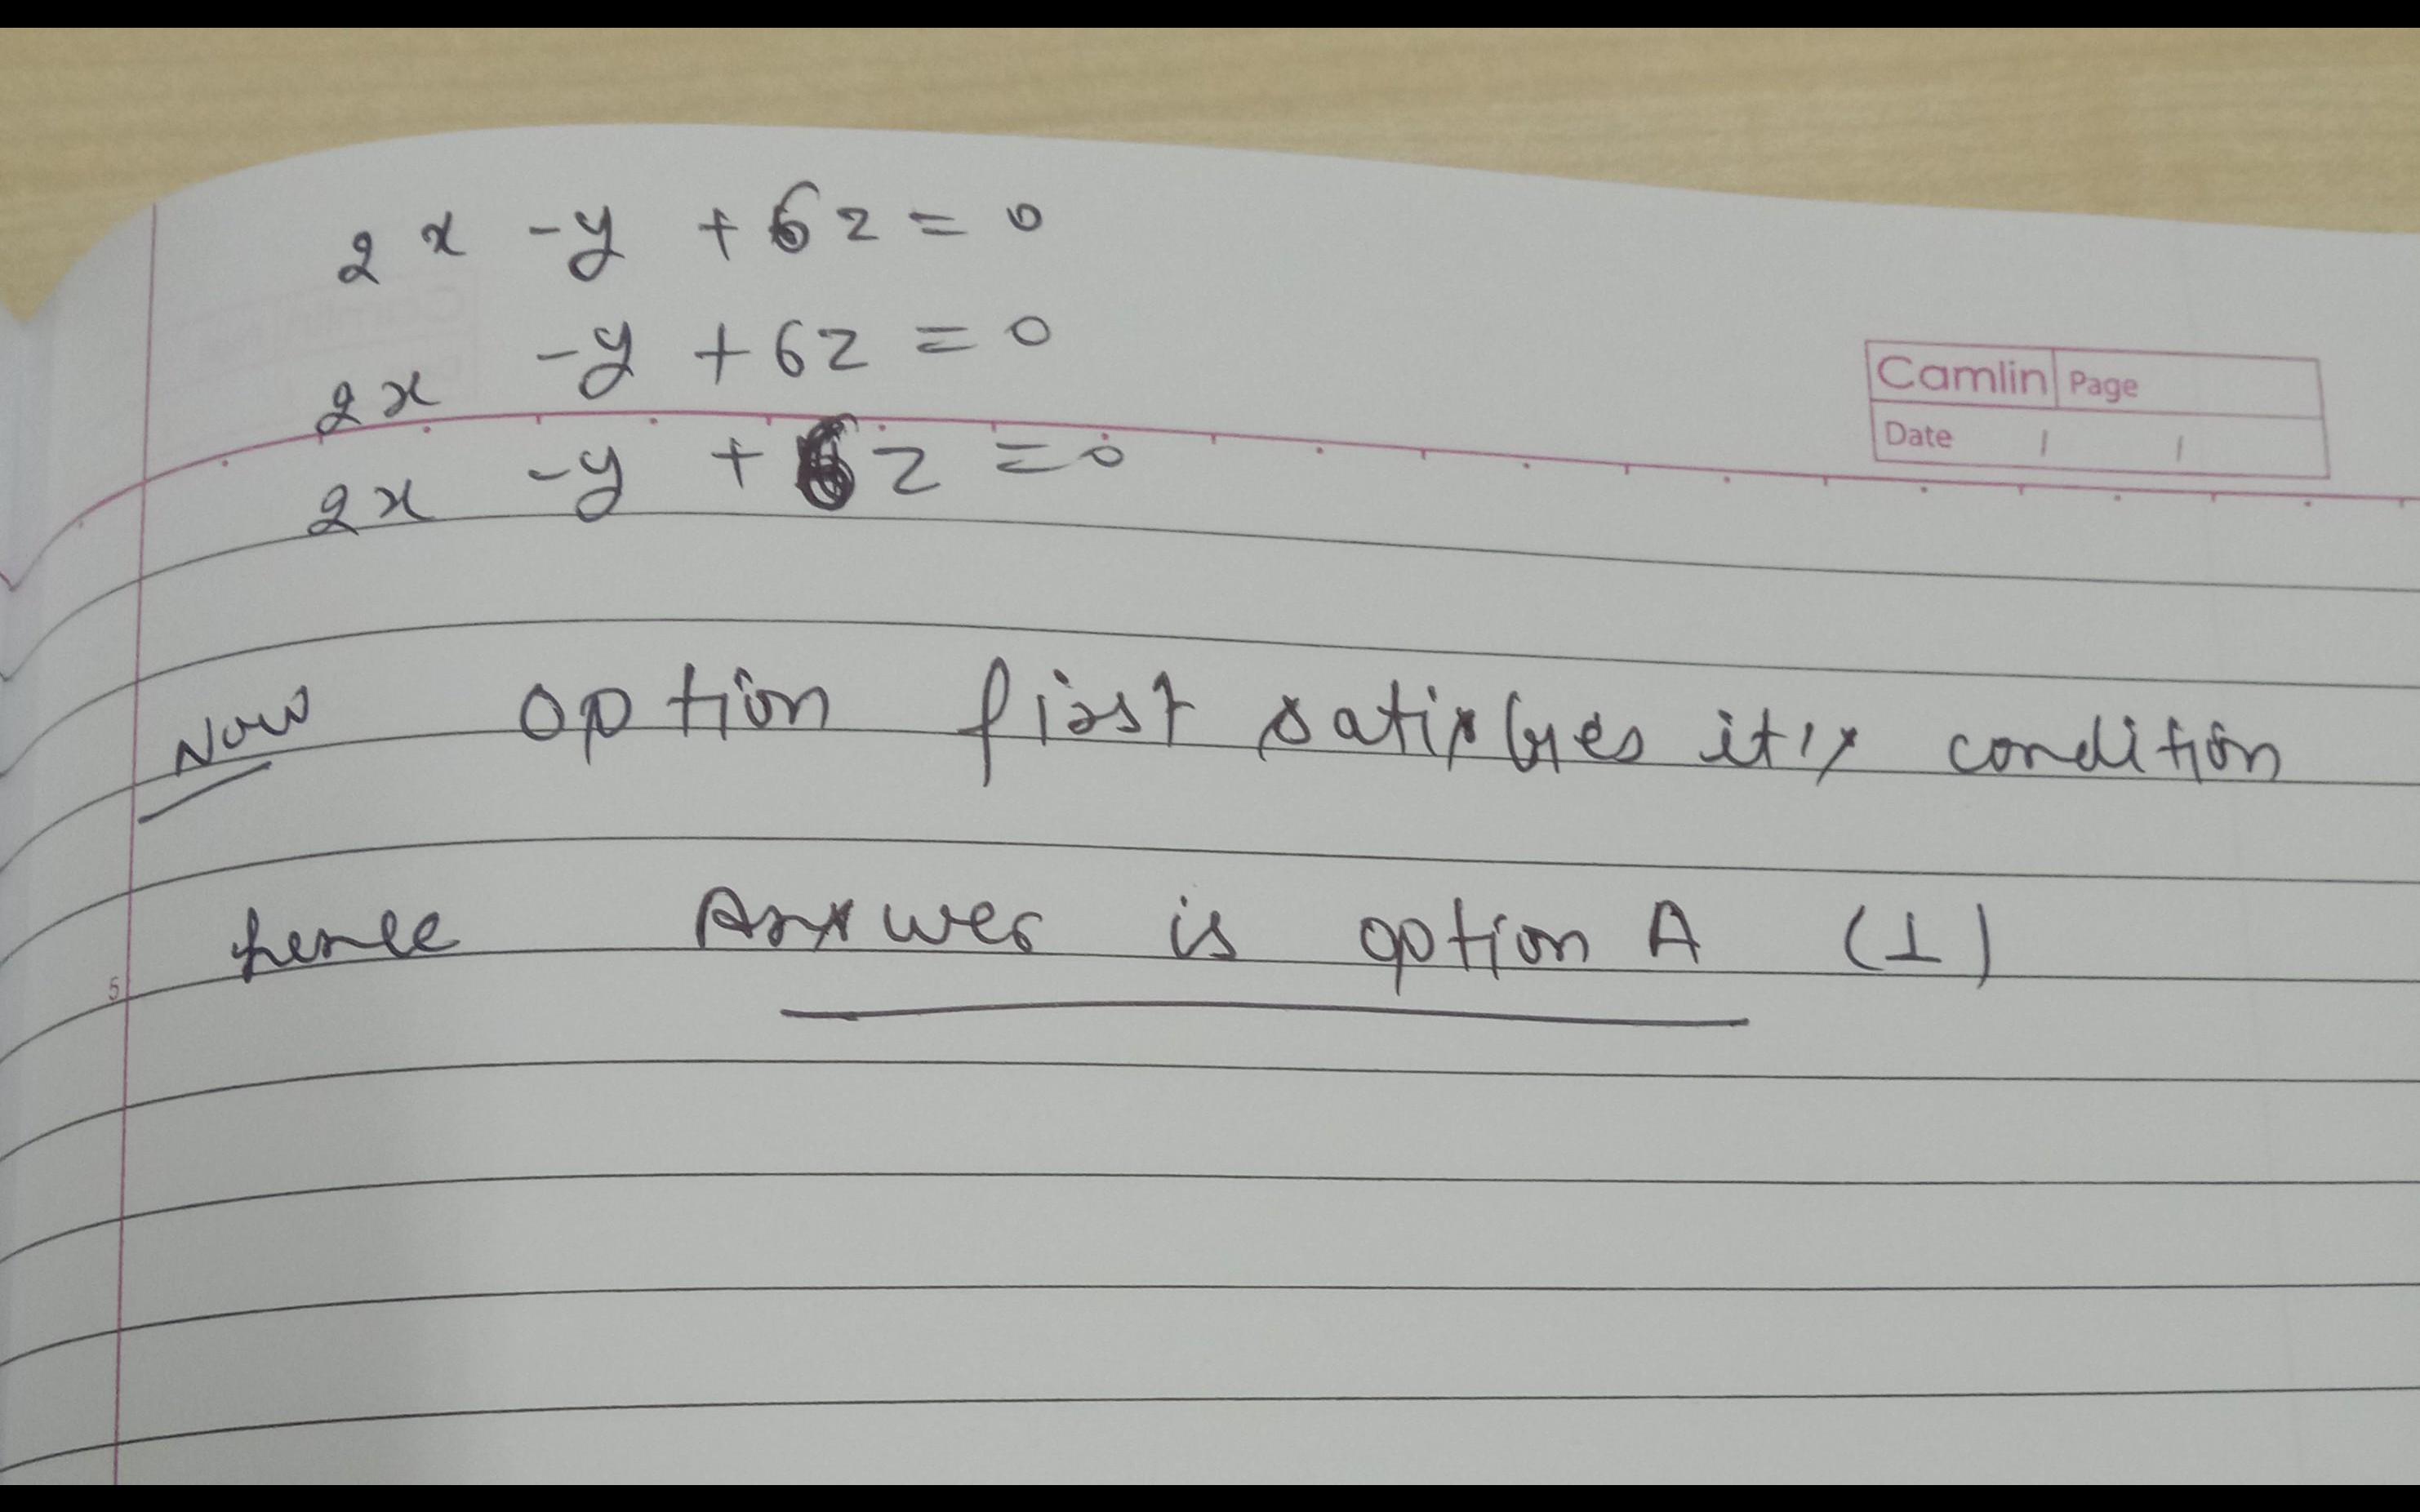 2x -y +6z = 0
2x -y +6z = 0
Camlin Page
Date
2x -y + 6z = 0
Now option first satisfyes it's condition
hence Answer is option A (1)
5